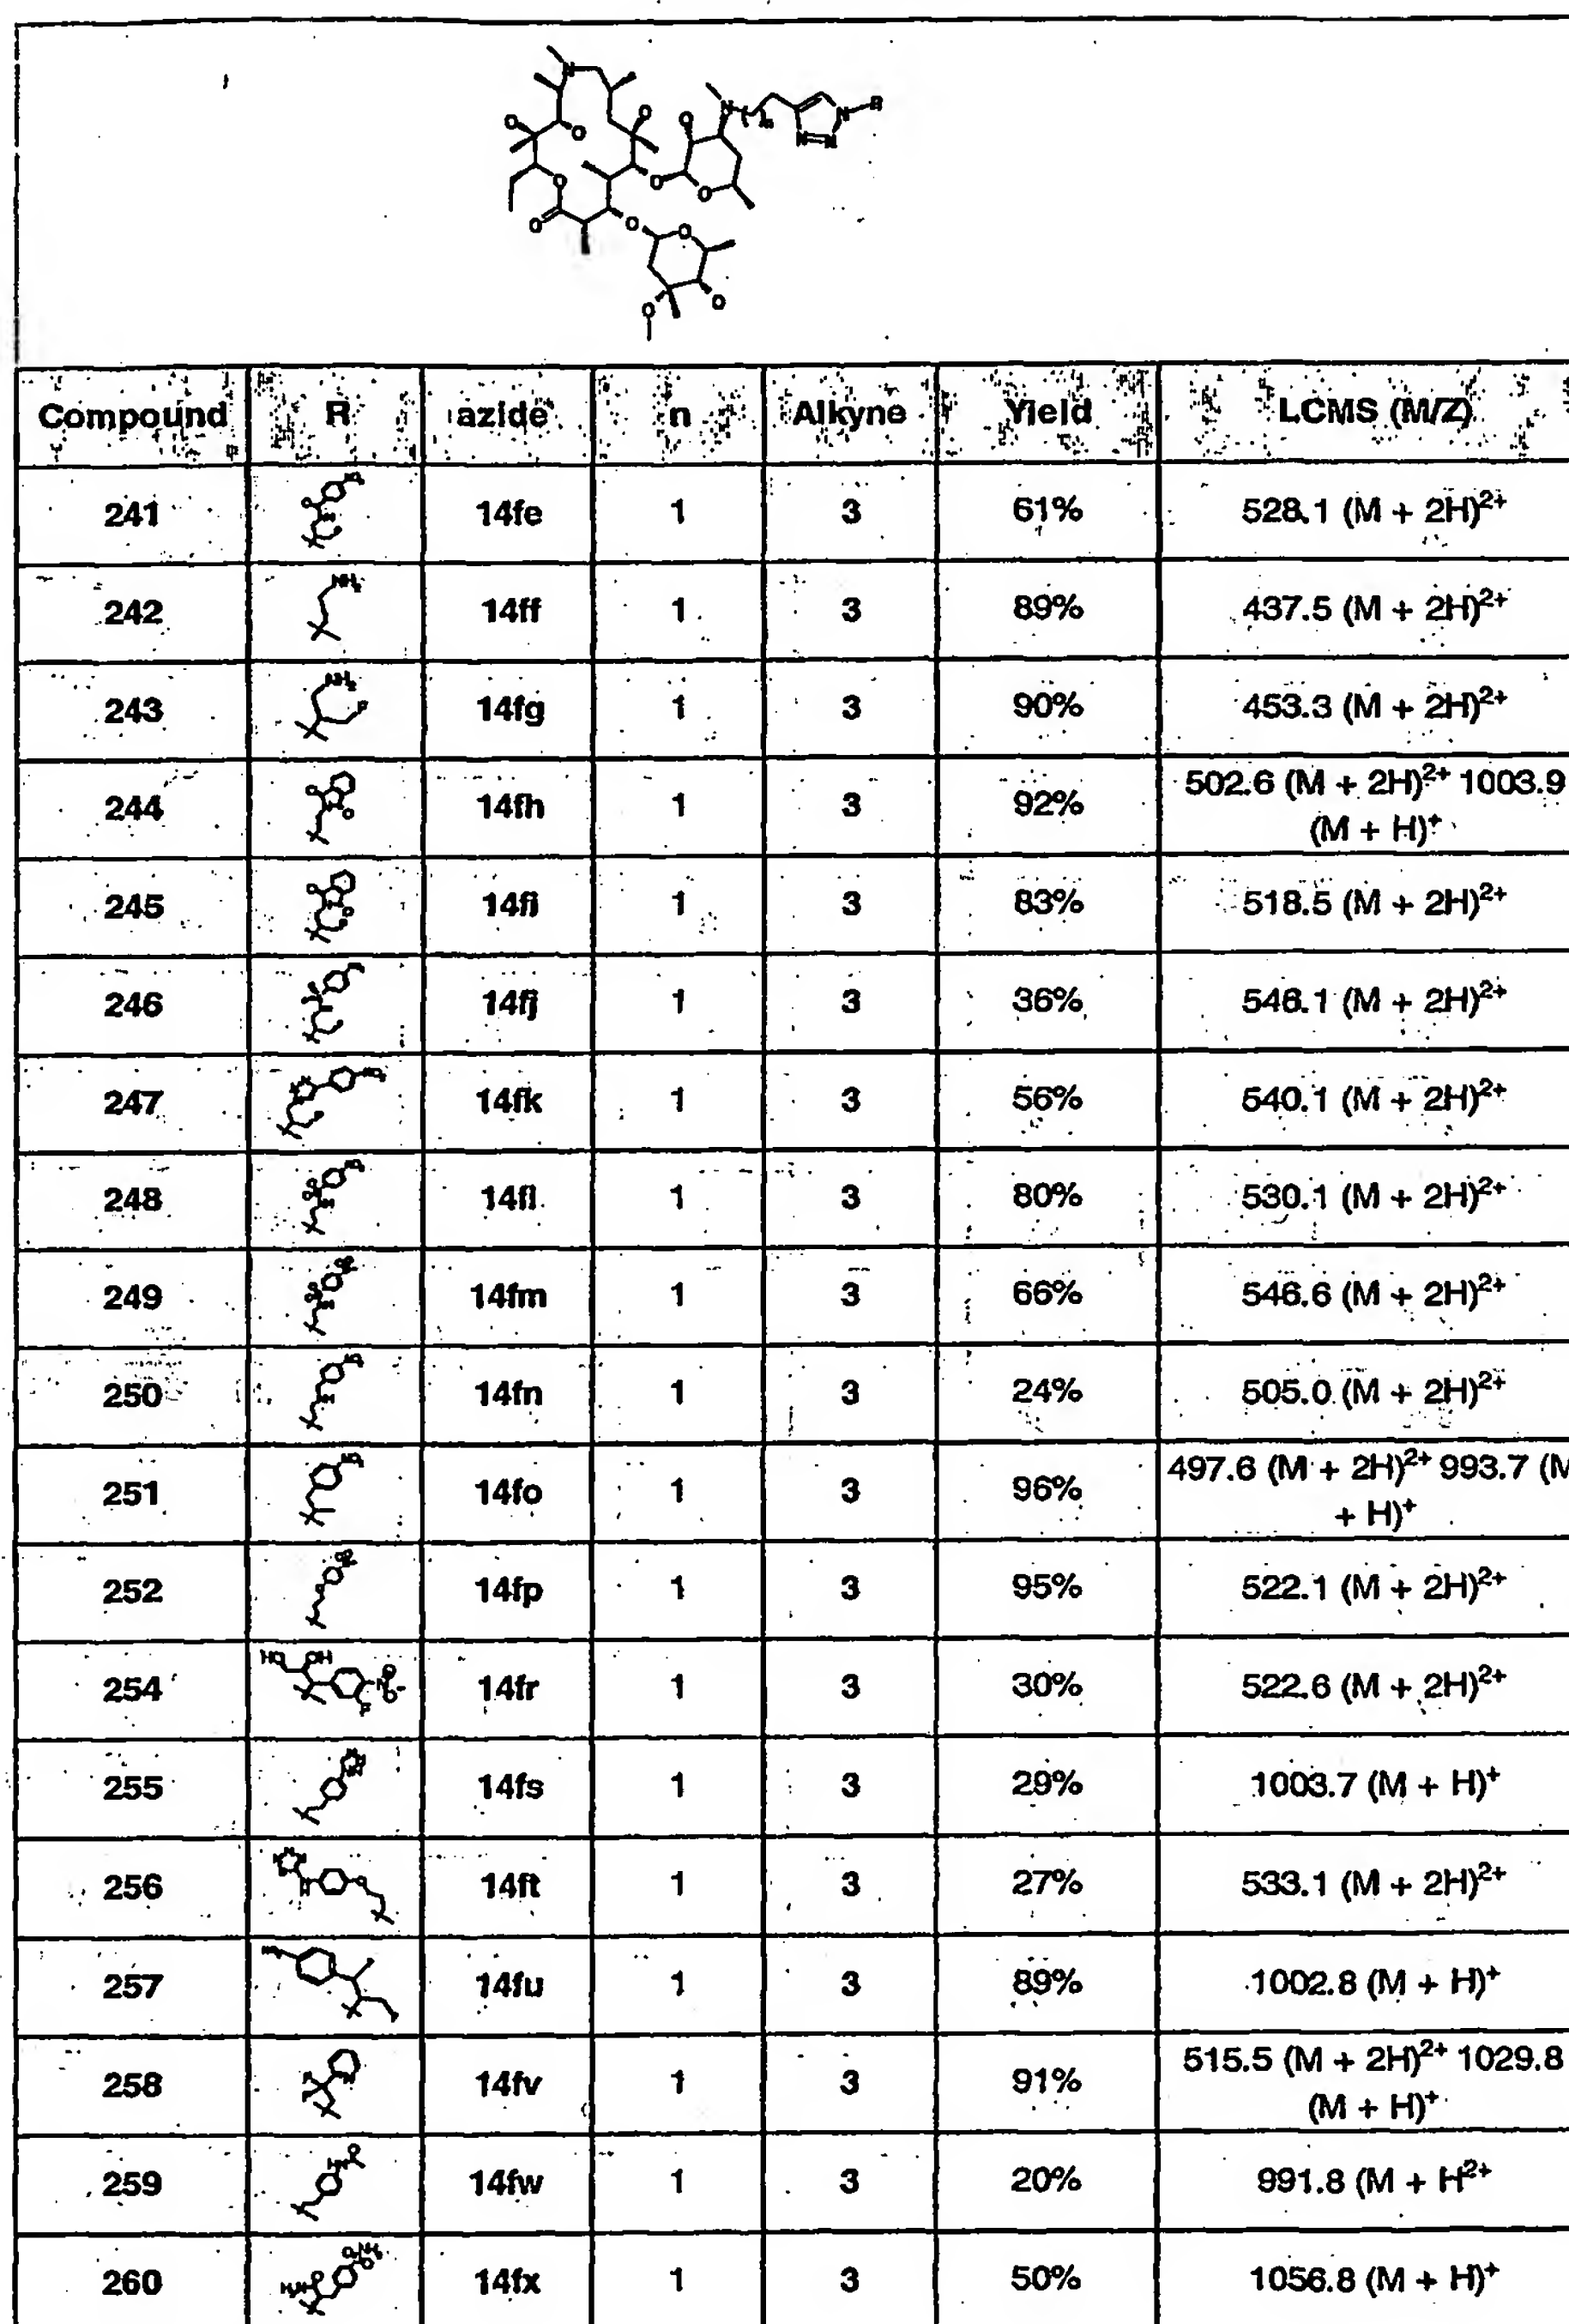 Compound R azide n Alkyne Yield LCMS (M/Z)
241 14fe 1 3 61% 528.1 (M + 2H)²⁺
242 NH₂ 14ff 1 3 89% 437.5 (M + 2H)²⁺
243 NH₂ F 14fg 1 3 90% 453.3 (M + 2H)²⁺
244 14fh 1 3 92% 502.6 (M + 2H)²⁺ 1003.9
(M + H)⁺
245 14fi 1 3 83% 518.5 (M + 2H)²⁺
246 14fj 1 3 36% 546.1 (M + 2H)²⁺
247 14fk 1 3 56% 540.1 (M + 2H)²⁺
248 14fl 1 3 80% 530.1 (M + 2H)²⁺
249 14fm 1 3 66% 546.6 (M + 2H)²⁺
250 14fn 1 3 24% 505.0 (M + 2H)²⁺
251 14fo 1 3 96% 497.6 (M + 2H)²⁺ 993.7 (M
+ H)⁺
252 14fp 1 3 95% 522.1 (M + 2H)²⁺
254 HO OH 14fr 1 3 30% 522.6 (M + 2H)²⁺
255 14fs 1 3 29% 1003.7 (M + H)⁺
256 14ft 1 3 27% 533.1 (M + 2H)²⁺
257 14fu 1 3 89% 1002.8 (M + H)⁺
258 14fv 1 3 91% 515.5 (M + 2H)²⁺ 1029.8
(M + H)⁺
259 14fw 1 3 20% 991.8 (M + H²⁺
260 14fx 1 3 50% 1056.8 (M + H)⁺